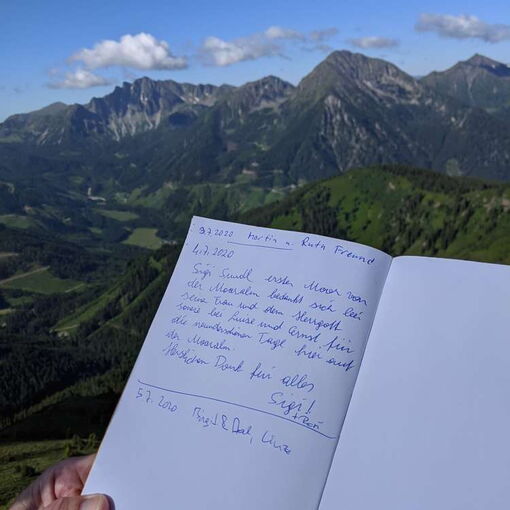 3.7.2020 Martin u. Ruth Freund
4.7.2020
Sigi erster Moar von
der Mooralm bedankt sich bei
seine Frau und dem Herrgott
sowie bei Luise und Ernst für
die wunderschönen Tage hier auf
der Mooralm.
Herzlichen Dank für alles
Sigi!
5.7.2020 &